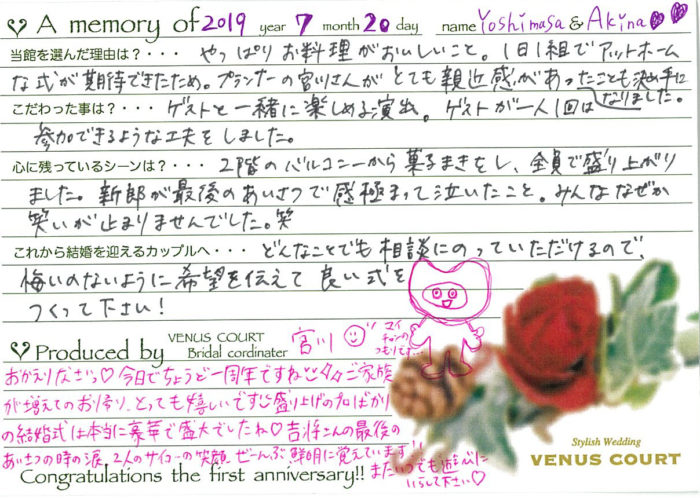 A memory of 2019 year 7 month 20 day name Yoshimasa & Akina
当館を選んだ理由は？・・・ やっぱりお料理がおいしいこと。1日1組でアットホーム
な式が期待できたため。プランナーの宮川さんがとても親近感があったことも決め手に
なりました。
こだわった事は？・・・ ゲストと一緒に楽しめる演出。ゲストが一人1回は
参加できるような工夫をしました。
心に残っているシーンは？・・・ 2階のバルコニーから菓子まきをし、全員で盛り上がり
ました。新郎が最後のあいさつで感極まって泣いたこと。みんななぜか
笑いが止まりませんでした。笑
これから結婚を迎えるカップルへ・・・ どんなことでも相談にのっていただけるので、
悔いのないように希望を伝えて良い式を
つくって下さい！
Produced by VENUS COURT Bridal cordinater 宮川
マイチャンのつもりです…
おかえりなさいっ♡今日でちょうど一周年ですね ご家族
が増えてのお帰り、とっても嬉しいです 盛り上げのプロばかり
の結婚式は本当に豪華で盛大でしたね♡吉将さんの最後の
あいさつの時の涙、2人のサイコーの笑顔、ぜーんぶ鮮明に覚えています!!
またいつでも遊びに
いらして下さい♡
Congratulations the first anniversary!!
Stylish Wedding
VENUS COURT